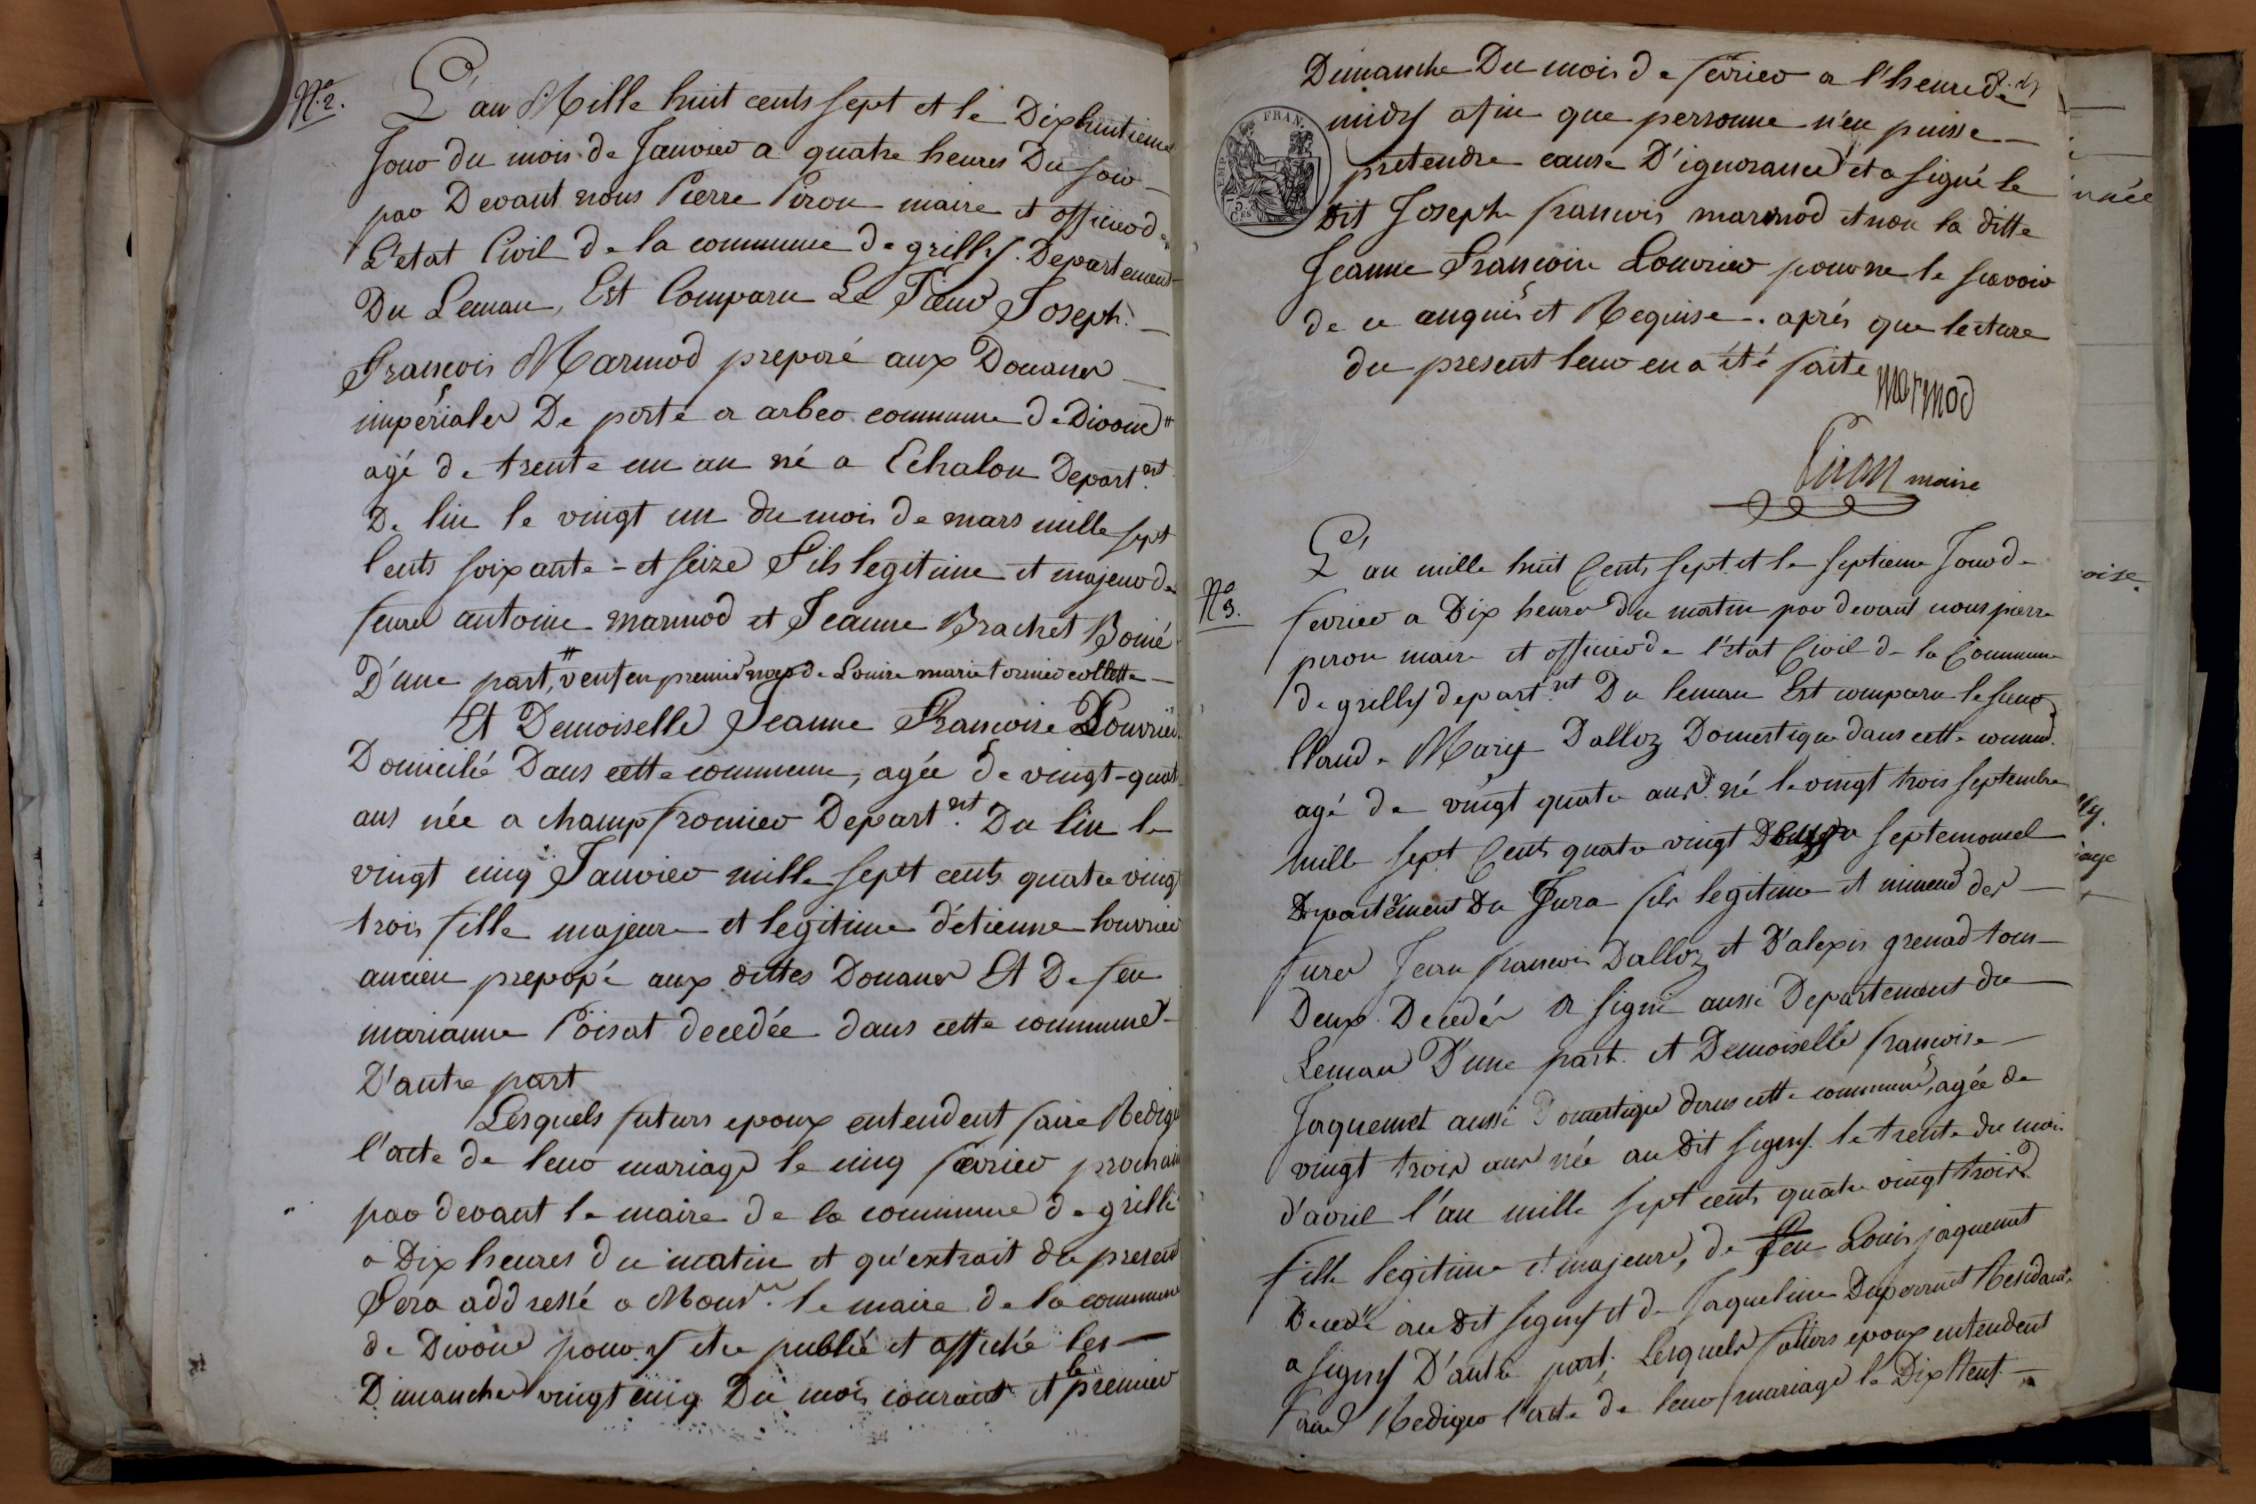 N.º 2.
L'an Mille huit cents sept et le Dixhuitieme
Jour du mois de Janvier a quatre heures Du soir
par Devant nous Pierre Piron maire et officier de
L'etat Civil de la commune de grilly. Departement
Du Leman, Est Comparu Le Sieur Joseph
François Marmod preposé aux Douanes
imperiales De poste a arbeo commune de Divonne "
agé de trente un an né a Echalon Depart.nt
De lin le vingt un du mois de mars mille sept
Cents soixante-et seize Fils legitime et majeur de
feurs antoine marmod et Jeanne Brachet Bonié
D'une part, " veuf en premier noces de Louise marie tornier collette
Et Demoiselle Jeanne Francoise Louvrier
Domicilié Dans cette commune, agée de vingt-quat
ans née a champfromier Depart.nt Du lin le
vingt cinq Janvier mille sept cents quatre vingt
trois fille majeure et legitime d'étienne Louvrier
ancien preposé aux dittes Douanes Et De feu
marianne Poisat decedée dans cette commune
D'autre part
Lesquels futurs epoux entendent faire Rediger
l'acte de leur mariage le cinq fevrier prochain
par devant le maire de la commune de grilli
a Dix heures du matin et qu'extrait du present
Sera addressé a Mons.r le maire de la commune
de Divone pour y etre publié et affiché les
Dimanches vingt cinq Du mois courant et le premier
Dimanche Du mois de fevrier a l'heure de
midy afin que personne n'en puisse
pretendre cause D'ignorance et a signé le
dit Joseph francois marmod et non la ditte
Jeanne Francoise Louvrier pour ne le scavoir
de ce enquis et Requise. aprés que lecture
du present leur en a été faite
marmod
Piron maire
FRAN.
75 CES
N.º 3.
L'an mille huit Cents sept et le septieme Jour de
fevrier a Dix heures du matin par devant nous pierre
piron maire et officier de l'état Civil de la Commune
de grilly depart.nt Du leman Est comparu le sieur
Claude Mary Dalloz Domestique dans cette commu.
agé de vingt quatre ans né le vingt trois septembre
mille sept Cents quatre vingt Deux a septemoncel
Departement Du Jura fils legitime et mineur des
furer Jean francois Dalloz et D'alexis grenad tous
Deux Decedés a signi aussi Departement du
Leman D'une part. et Demoiselle francoise
Jaquemet aussi Domestique dans cette commune, agée de
vingt trois ans née au dit signy le trente du mois
d'avril l'an mille sept cents quatre vingt trois
fille legitime et majeure, de feu Louis jaquemet
Decedé au dit signy et de Jaqueline Duperruet Residant
a signy D'autre part. Lesquels futurs epoux entendent
faire Rediger l'acte de leur mariage le Dix Neuf